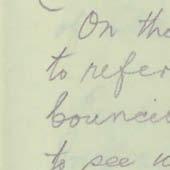 On the
to refer
Council
to see